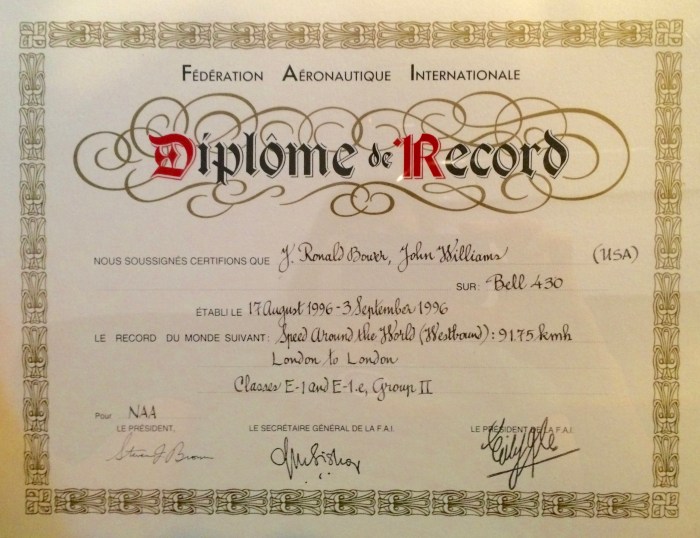 FÉDÉRATION AÉRONAUTIQUE INTERNATIONALE
Diplôme de Record
NOUS SOUSSIGNÉS CERTIFIONS QUE J. Ronald Bower, John Williams (USA)
SUR: Bell 430
ÉTABLI LE 17 August 1996 - 3 September 1996
LE RECORD DU MONDE SUIVANT: Speed Around the World (Westbound): 91.75 kmh
London to London
Classes E-1 and E-1.e, Group II
Pour NAA
LE PRÉSIDENT, LE SECRÉTAIRE GÉNÉRAL DE LA F.A.I. LE PRÉSIDENT DE LA F.A.I.